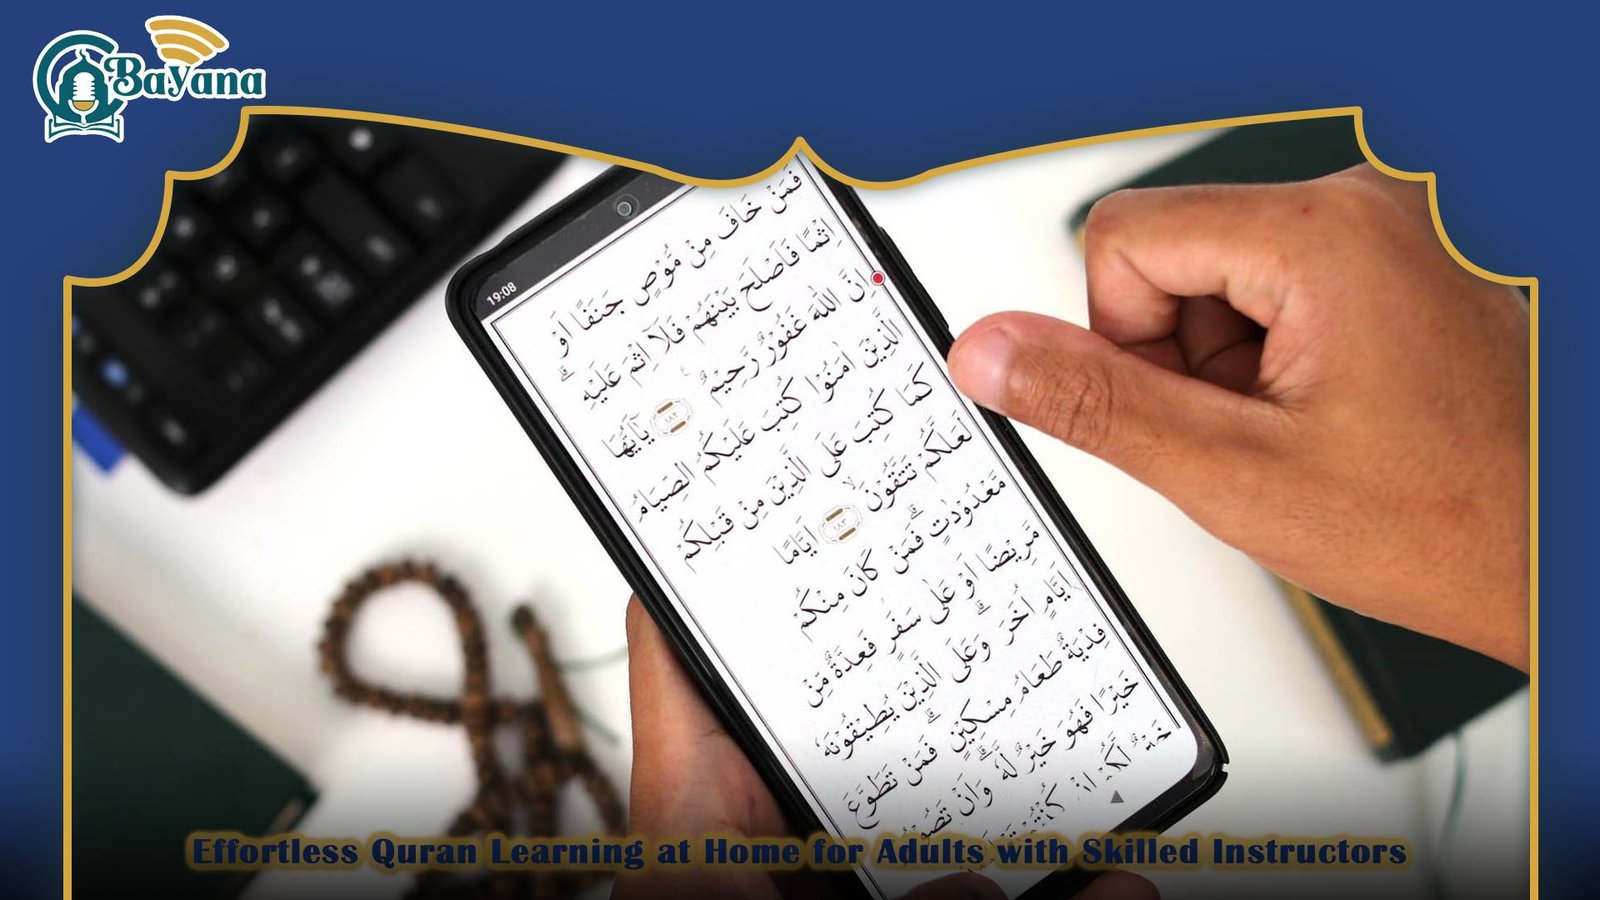 Bayana
19:08
فَمَنْ خَافَ مِنْ مُّوْصٍ جَنَفًا اَوْ
اِثْمًا فَاَصْلَحَ بَيْنَهُمْ فَلَآ اِثْمَ عَلَيْهِ ۗ
اِنَّ اللّٰهَ غَفُوْرٌ رَّحِيْمٌ ࣖ ١٨٢ يٰٓاَيُّهَا
الَّذِيْنَ اٰمَنُوْا كُتِبَ عَلَيْكُمُ الصِّيَامُ
كَمَا كُتِبَ عَلَى الَّذِيْنَ مِنْ قَبْلِكُمْ
لَعَلَّكُمْ تَتَّقُوْنَۙ ١٨٣ اَيَّامًا
مَّعْدُوْدٰتٍۗ فَمَنْ كَانَ مِنْكُمْ
مَّرِيْضًا اَوْ عَلٰى سَفَرٍ فَعِدَّةٌ مِّنْ
اَيَّامٍ اُخَرَ ۗ وَعَلَى الَّذِيْنَ يُطِيْقُوْنَهٗ
فِدْيَةٌ طَعَامُ مِسْكِيْنٍۗ فَمَنْ تَطَوَّعَ
خَيْرًا فَهُوَ خَيْرٌ لَّهٗ ۗ وَاَنْ تَصُوْمُ
خَيْرٌ لَّكُمْ اِنْ كُنْتُمْ
Effortless Quran Learning at Home for Adults with Skilled Instructors